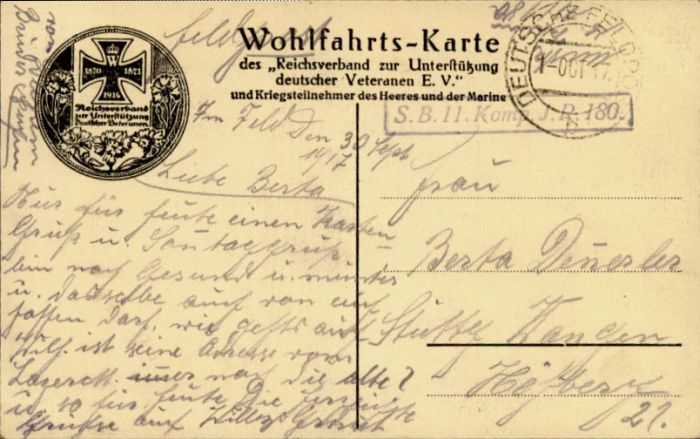 Feldpost
Wohlfahrts-Karte
des „Reichsverband zur Unterstützung
deutscher Veteranen E. V."
und Kriegsteilnehmer des Heeres und der Marine
1870 1871
1914
Reichsverband
zur Unterstützung
Deutscher Veteranen.
DEUTSCHE FELDP
S. B. 11. Komp. J. R. 180.
Im Feld den 30 Sept
1917
Liebe Berta
Nur für heute einen Karten
Gruß u. Sontaggruß
bin noch Gesund u. munter
u. dasselbe auch von
hoffen darf. wie gehts auch
ist seine Adresse vom
Lazerett immer noch die alte?
u. so für heute Die
Grüße auf
Frau
Berta
Stuttg Wangen
22.